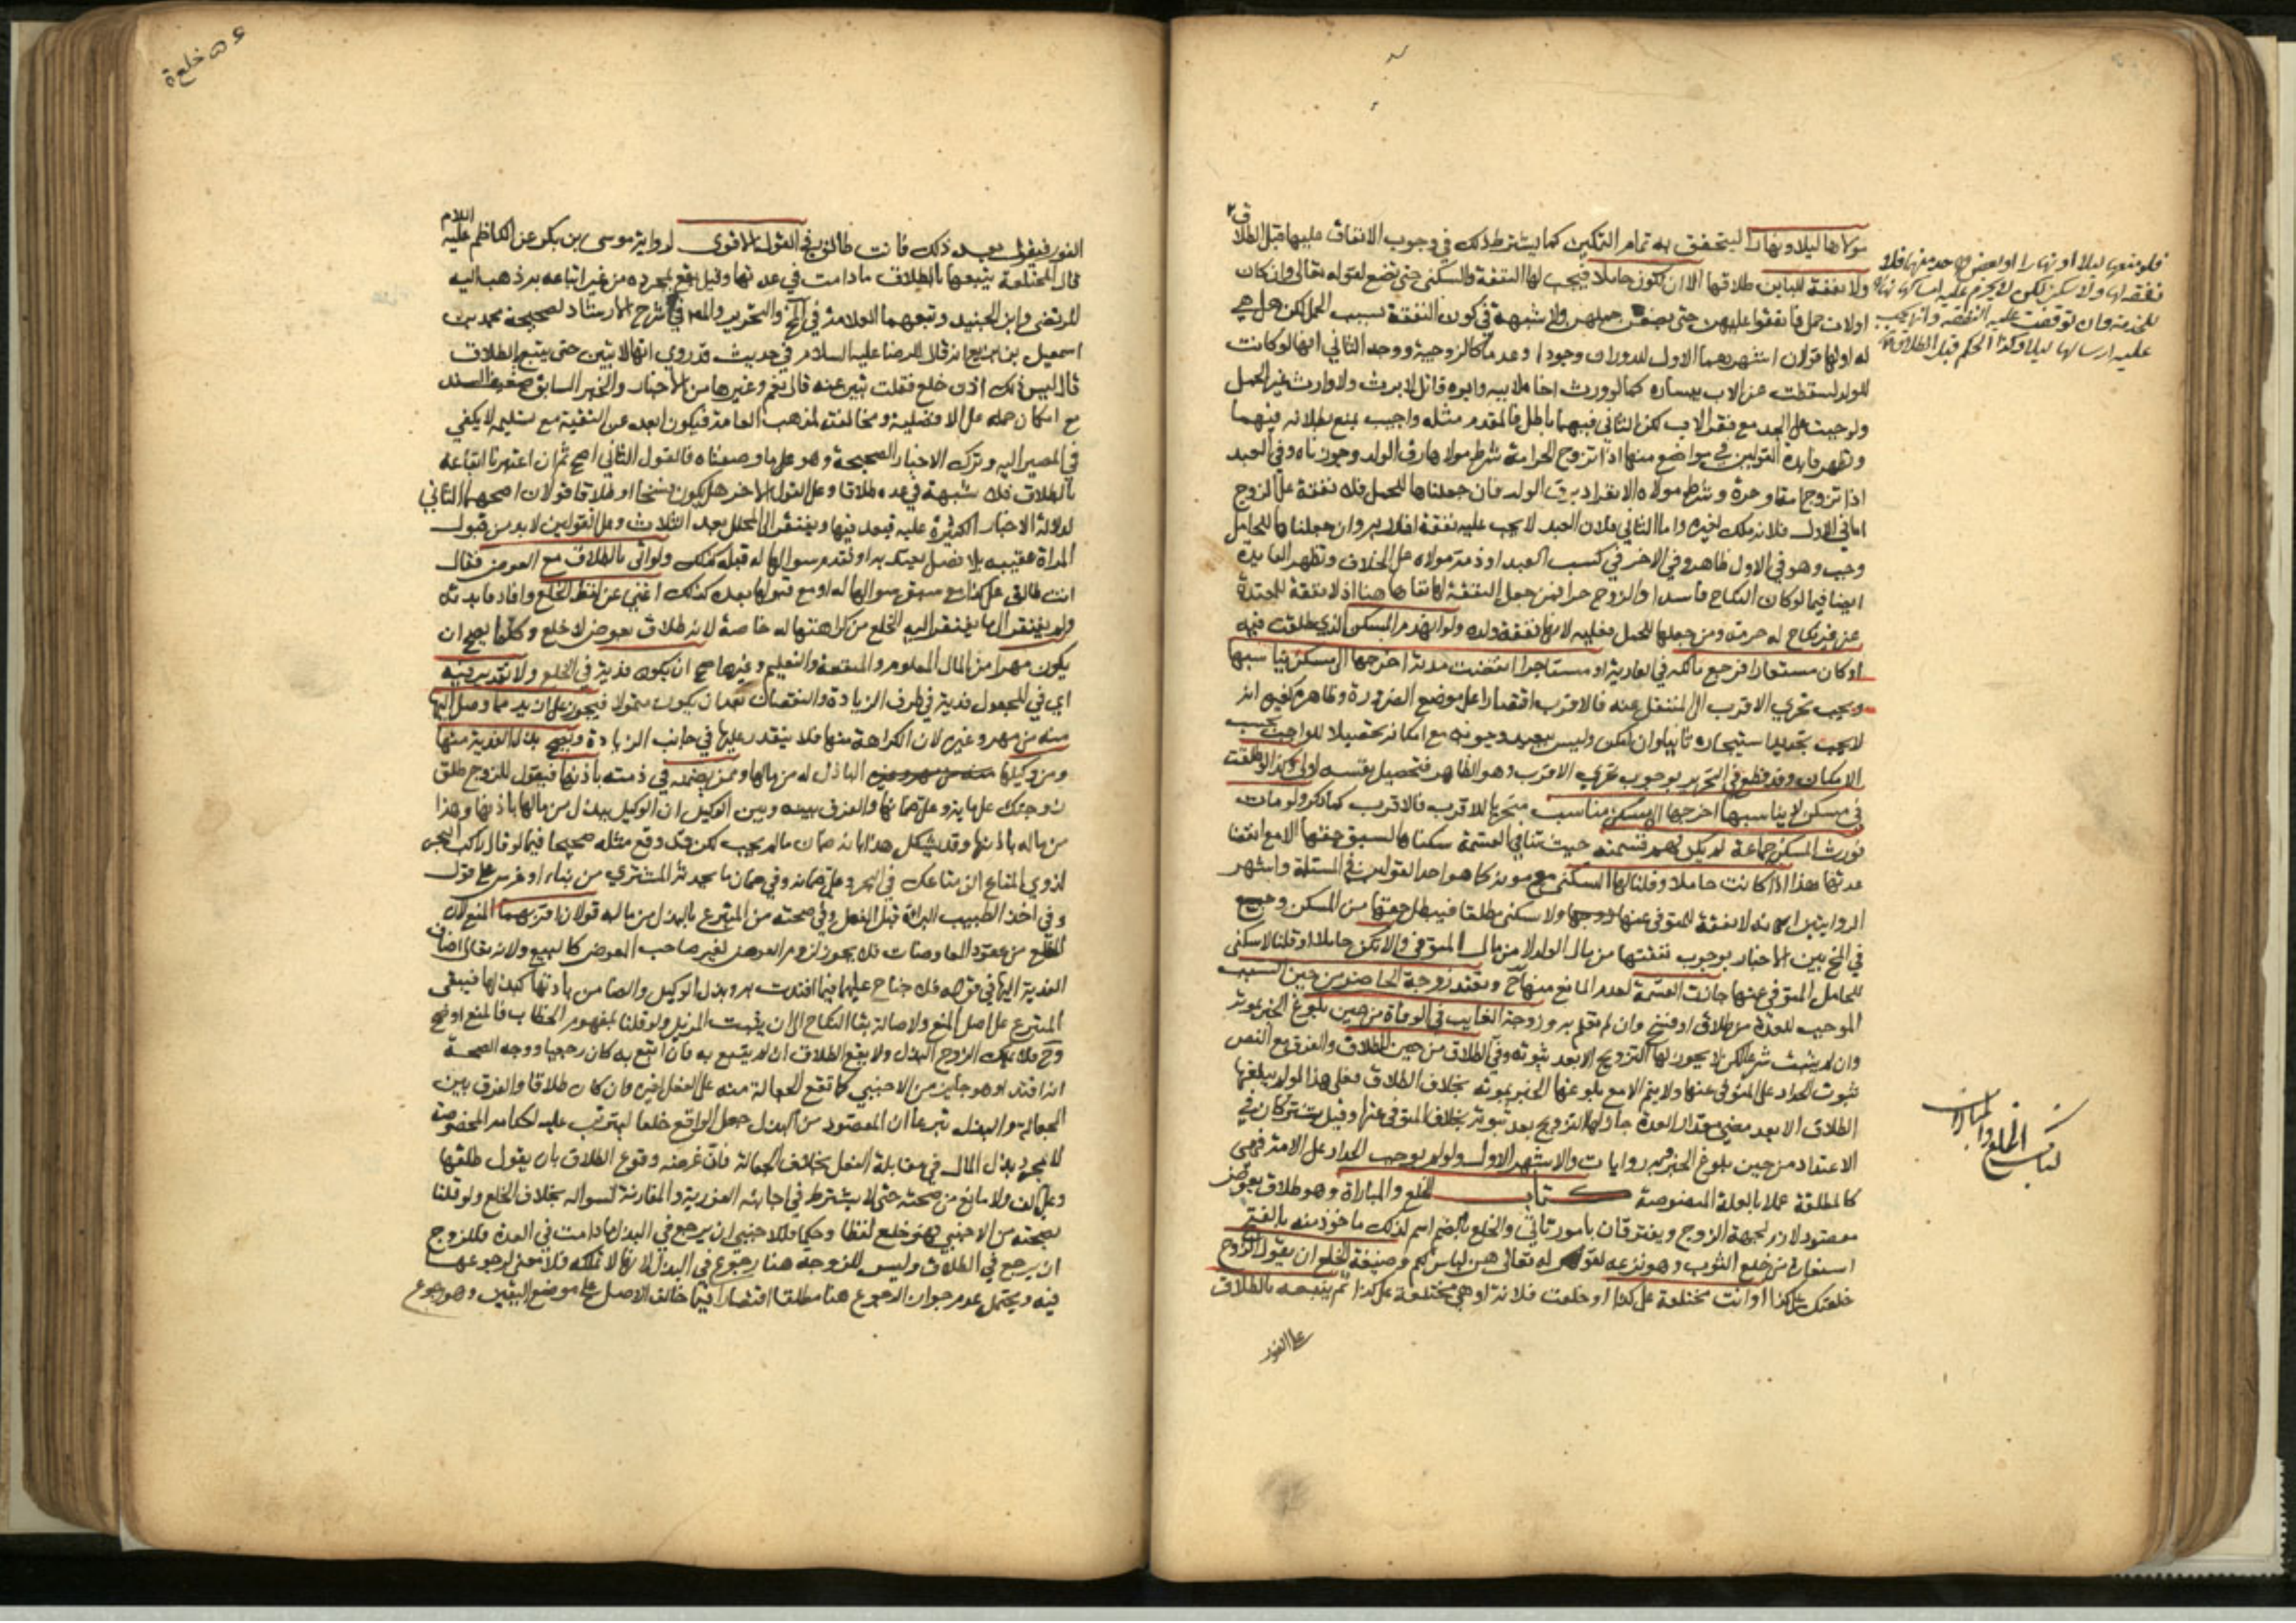 مولاها ليلا ونهارا ليتحقق به تمام التمكين كما يشترط ذلك في وجوب الانفاق عليها قبل الطلاق
ولا نفقة للباين طلاقها الا ان تكون حاملا فيجب لها النفقة والسكنى حتى تضع لقوله تعالى وان كن
اولات حمل فانفقوا عليهن حتى يضعن حملهن ولا شبهة في كون النفقة بسبب الحمل لكن هل هي
له او لها قولان اشهرهما الاول للدوران وجودا وعدما كالزوجية ووجه الثاني انها لو كانت
للولد لسقطت عن الاب بيساره كما لو ورث اخا لابيه وابوه قاتل لا يرث ولا وارث غير الحمل
ولوجبت على الجد مع فقر الاب لكن التالي فيهما باطل فالمقدم مثله واجيب بمنع بطلانه فيهما
وتظهر فايدة القولين في مواضع منها اذا تزوج الحر امة شرط مولاها رق الولد وجوزناه وفي العبد
اذا تزوج امة او حرة وشرط مولاه الانفراد برق الولد فان جعلناها للحمل فلا نفقة على الزوج
اما في الاول فلانه ملك لغيره واما الثاني فلان العبد لا يجب عليه نفقة اقاربه وان جعلناها للحامل
وجب وهو في الاول ظاهر وفي الاخر في كسب العبد او ذمة مولاه على الخلاف وتظهر الفايدة
ايضا فيما لو كان النكاح فاسدا والزوج حرا فمن جعل النفقة لها نفاها هنا اذ لا نفقة للمعتدة
عن غير نكاح له حرمة ومن جعلها للحمل فعليه لانها نفقة ولده ولو انهدم المسكن الذي طلقت فيه
او كان مستعارا فرجع مالكه في العارية او مستاجرا انقضت مدته اخرجها الى مسكن يناسبها
ويجب تحري الاقرب الى المنتقل عنه فالاقرب اقتصارا على موضع الضرورة وظاهره كغيره انه
لا يجب تجديد استيجاره ثانيا وان امكن وليس ببعيد وجوبه مع امكانه تحصيلا للواجب بحسب
الامكان وقد قطع في التحرير بوجوب تحري الاقرب وهو الظاهر فتحصيل نفسه اولى وكذا لو طلقت
في مسكن لا يناسبها اخرجها الى مسكن مناسب متحريا للاقرب فالاقرب كما ذكر ولو مات
فورث المسكن جماعة لم يكن لهم قسمته حيث تنافي القسمة سكناها لسبق حقها الا مع انقضاء
عدتها هذا اذا كانت حاملا وقلنا لها السكنى مع موته كما هو احد القولين في المسئلة واشهر
الروايتين انه لا نفقة للمتوفى عنها زوجها ولا سكنى مطلقا فيبطل حقها من المسكن وجمع
في المخ بين الاخبار بوجوب نفقتها من مال الولد لا من مال المتوفى والا تكن حاملا او قلنا لا سكنى
للحامل المتوفى عنها جازت القسمة لعدم المانع منها ح وتعتد زوجة الحاضر من حين السبب
الموجب للعدة من طلاق او فسخ وان لم تعلم به وزوجة الغايب في الوفاة من حين بلوغ الخبر بموته
وان لم يثبت شرعا لكن لا يجوز لها التزويج الا بعد ثبوته وفي الطلاق من حين الطلاق والفرق مع النص
ثبوت الحداد على المتوفى عنها ولا يتم الا مع بلوغها الخبر بموته بخلاف الطلاق فعلى هذا لو لم يبلغها
الطلاق الا بعد مضي مقدار العدة جاز لها التزويج بعد ثبوته بخلاف المتوفى عنها وقيل تشتركان في
الاعتداد من حين بلوغ الخبر وبه روايات والاشهر الاول ولو لم نوجب الحداد على الامة فهي
كالمطلقة عملا بالعلة المنصوصة كتاب الخلع والمباراة وهو طلاق بعوض
مقصود لازم لجهة الزوج ويفترقان بامور تاتي والخلع بالضم اسم لذلك ماخوذ منه بالفتح
استعارة من خلع الثوب وهو نزعه لقوله تعالى هن لباس لكم وصيغة الخلع ان يقول الزوج
خلعتك على كذا او انت مختلعة على كذا او خلعت فلانة او هي مختلعة على كذا ثم يتبعه بالطلاق
على الفور
فلو منعها ليلا او نهارا او بعض واحد منهما فلا
نفقة لها ولا سكنى لكن لا يحرم عليه امساكها نهارا
للخدمة وان توقفت عليه النفقة وانما يجب
عليه ارسالها ليلا وكذا الحكم قبل الطلاق
كتاب الخلع والمباراة
خلع
الفور فيقول بعد ذلك فانت طالق في القول الاقوى لرواية موسى بن بكر عن الكاظم عليه السلام
قال المختلعة يتبعها بالطلاق ما دامت في عدتها وقيل يقع بمجرده من غير اتباعه به ذهب اليه
المرتضى وابن الجنيد وتبعهما العلامة في المخ والتحرير والمص في شرح الارشاد لصحيحة محمد بن
اسمعيل بن بزيع انه قال للرضا عليه السلام في حديث قد روي انها لا تبين حتى يتبع بالطلاق
قال ليس ذلك اذن خلع فقلت تبين منه قال نعم وغيرها من الاخبار والخبر السابق ضعيف السند
مع امكان حمله على الافضلية ومخالفته لمذهب العامة فيكون ابعد عن التقية مع تسليمه لا يكفي
في المصير اليه وترك الاخبار الصحيحة وهو على ما وصفناه فالقول الثاني اصح ثم ان اعتبرنا اتباعه
بالطلاق فلا شبهة في عده طلاقا وعلى القول الاخر هل يكون فسخا او طلاقا قولان اصحهما الثاني
لدلالة الاخبار الكثيرة عليه فيعد فيها ويفتقر الى المحلل بعد الثلاث وعلى القولين لا بد من قبول
المراة عقيبه بلا فصل يعتد به او تقدم سؤالها له قبله كذلك ولو اتى بالطلاق مع العوض فقال
انت طالق على كذا مع سبق سؤالها له او مع قبولها بعده كذلك اغنى عن لفظ الخلع وافاد فايدته
ولم يفتقر الى ما يفتقر اليه الخلع من كراهتها له خاصة لانه طلاق بعوض لا خلع وكلما يصح ان
يكون مهرا من المال المعلوم والمنفعة والتعليم وغيرها صح ان يكون فدية في الخلع ولا تقدير فيه
اي في المجعول فدية في طرف الزيادة والنقصان بعد ان يكون متمولا فيجوز على ازيد مما وصل اليها
منه من مهر وغيره لان الكراهة منها فلا يتقدر عليها في جانب الزيادة ويصح بذل الفدية منها
ومن وكيلها الباذل له من مالها وممن يضمنه في ذمته باذنها فيقول للزوج طلق
زوجتك على ماية وعلي ضمانها والفرق بينه وبين الوكيل ان الوكيل يبذل من مالها باذنها وهذا
من ماله باذنها وقد يشكل هذا بانه ضمان ما لم يجب لكن قد وقع مثله صحيحا فيما لو قال راكب البحر
لذوي المتاع الق متاعك في البحر وعلي ضمانه وفي ضمان ما يحدثه المشتري من بناء او غرس على قول
وفي اخذ الطبيب البراة قبل الفعل وفي صحته من المتبرع بالبذل من ماله قولان اقربهما المنع لان
الخلع من عقود المعاوضات فلا يجوز لزوم العوض لغير صاحب العوض كالبيع ولانه تعالى اضاف
الفدية اليها في قوله فلا جناح عليهما فيما افتدت به وبذل الوكيل والضامن باذنها كبذلها فيبقى
المتبرع على اصل المنع ولاصالة بقاء النكاح الى ان يثبت المزيل ولو قلنا بمفهوم الخطاب فالمنع اوضح
وح فلا يملك الزوج البذل ولا يقع الطلاق ان لم يتبع به فان اتبع به كان رجعيا ووجه الصحة
انه افتداء وهو جايز من الاجنبي كما تقع الجعالة منه على الفعل لغيره وان كان طلاقا والفرق بين
الجعالة والبذل تبرعا ان المقصود من البذل جعل الواقع خلعا ليترتب عليه احكامه المخصوصة
لا مجرد بذل المال في مقابلة الفعل بخلاف الجعالة فان غرضه وقوع الطلاق بان يقول طلقها
وعلي الف ولا مانع من صحته حتى لا يشترط في اجابته الفورية والمقارنة لسؤاله بخلاف الخلع ولو قلنا
بصحته من الاجنبي فهو خلع لفظا وحكما فللاجنبي ان يرجع في البذل ما دامت في العدة فللزوج
ان يرجع في الطلاق وليس للزوجة هنا رجوع في البذل لانها لا تملكه فلا معنى لرجوعها
فيه ويحتمل عدم جواز الرجوع هنا مطلقا اقتصارا فيما خالف الاصل على موضع اليقين وهو رجوع